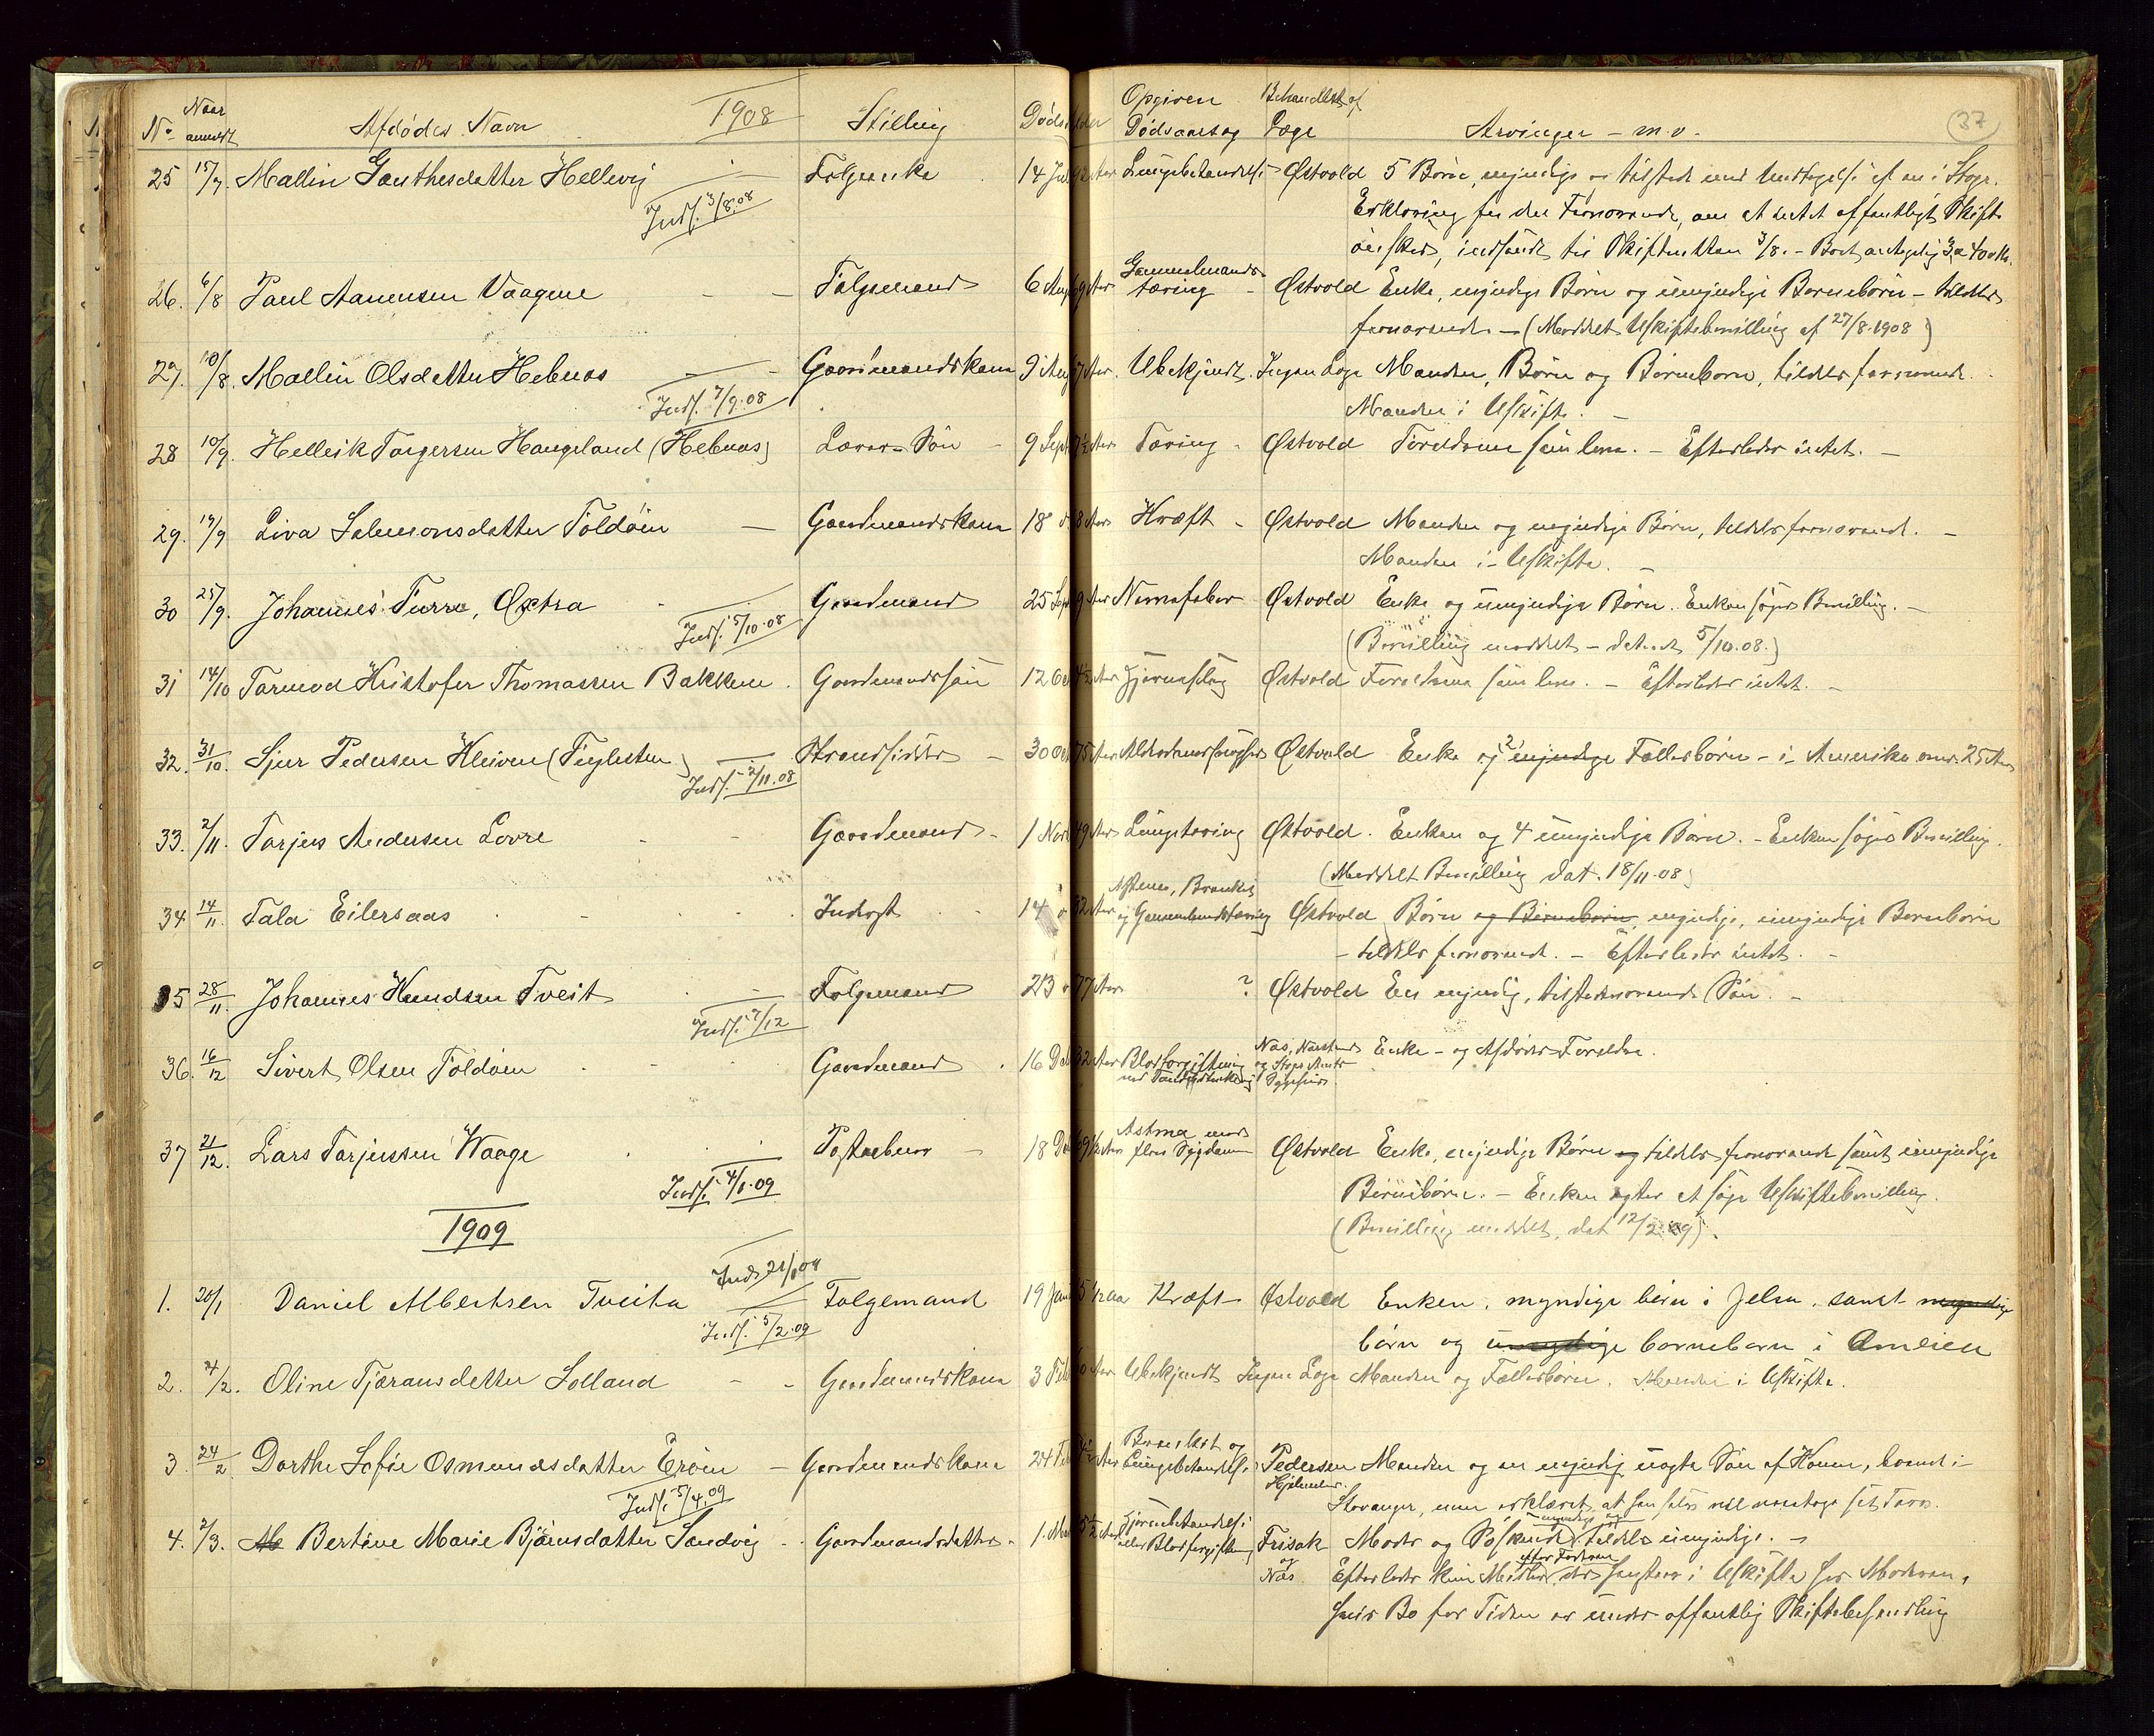 No. Naar anmeldt Afdødes Navn 1908 Stilling Døds Alder Opgiven Dødsaarsag Behandlet af Læge Arvinger - m.v. (37)
25 15/7. Mallin Gauthesdatter Hellevig Folgeenke 14 Juli Aar Lungebetændelse Østvold 5 Børn, myndige og tilstede med Undtagelse af en i Stvgr.
Inds. 3/8.08 Erklæring fra de Fraværende, om at intet offentligt Skifte
ønskes, indsendt til Skifteretten 3/8. - Boet antagelig 3 a 400 Kr.
26. 6/8 Paul Aanensen Vaagene Folgemand 6 Aug 69 Aar Gammelmands-
tæring Østvold Enke, myndige Børn og umyndige Børnebørn - tildels
fraværende. - (Meddelt Uskiftebevilling af 27/8.1908)
27. 10/8. Mallin Olsdatter Hebnes Gaardmandskone 9 Aug Aar. Ubekjendt. Ingen Læge Manden, Børn og Børnebørn, tildels fraværende.
Inds. 7/9.08 Manden i Uskifte. -
28 10/9. Hellik Torgersen Haugeland (Hebnes) Lærer-Søn - 9 Sept ½ Aar Tæring - Østvold Forældrene som leve. - Efterlader intet. -
29. 19/9 Liva Salemonsdatter Foldøen - Gaardmandskone 18 8 Aar Kræft - Østvold Manden og myndige Børn, tildels fraværende. -
Manden i Uskifte. -
30 25/9. Johannes Furre, Øxtra Gaardmand 25 Sept 9 Aar Nervefeber Østvold Enke og umyndige Børn. Enken søger Bevilling. -
Inds. 5/10.08 (Bevilling meddelt - dateret 5/10.08.)
31 14/10 Tarmod Kristofer Thomassen Bakken. Gaardmandssøn 12 Oct ½ Aar Hjerneslag Østvold Forældrene som leve. - Efterlader intet. -
32. 31/10. Sjur Pedersen Kleiven (Teglesten) Strandsidder - 30 Oct 75 Aar Alderdomssvaghed Østvold Enke og 2 myndige Fællesbørn - i Amerika omkr. 25 Aar
Inds. 2/11.08
33. 2/11. Torjus Andersen Lovre Gaardmand - 1 Nov 49 Aar Lungetæring Østvold. Enken og 4 umyndige Børn. - Enken søger Bevilling.
(Meddelt Bevilling dat. 18/11.08)
34. 14/11 Tala Eilersaas Inderst 14 Aar Astma, Bronkit
og Gammelmandstæring Østvold Børn og Børnebørn, myndige, umyndige Børnebørn
- tildels fraværende. - Efterlader intet. -
35 28/11. Johannes Knudsen Tveit Folgemand 23 77 Aar ? Østvold En myndig, tilstedeværende Søn. -
Inds. 7/12
36. 16/12 Sivert Olsen Foldøen Gaardmand. 16 Dec 32 Aar Blodforgiftning
ved Tandudtrækning Næs, Nærstrand
og Stvgr Amts
Sygehus. Enke - og Afdødes Forældre.
37 21/12. Lars Torjussen Waage Postaabner - 18 Dec 69½ Aar Astma med
flere Sygdomme Østvold Enke, myndige Børn og tildels fraværende samt umyndige
Inds. 4/1.09 Børnebørn. - Enken agter at søge Uskiftebevilling.
(Bevilling meddelt, dat 12/2.09).
1909
Inds 21/1 09
1. 20/1 Daniel Albertsen Tveita Folgemand 19 Jan ½ aar Kræft Østvold Enken, myndige børn i Jelsa, samt myndige
Inds. 5/2.09 børn og umyndige børnebørn i Amerika
2. 4/2. Oline Tjæransdatter Solland - - Gaardmandskone 3 Feb Aar Ubekjendt Ingen Læge Manden og Fællesbørn. Manden i Uskifte.
3. 24/2 Dorthe Sofie Osmundsdatter Erøen - Gaardmandskone 24 Feb ½ Aar Bronkit og
Lungebetændelse Pedersen
Hjelmeland Manden og en myndig uægte Søn af Konen, boende i
Inds. 5/4.09 Stavanger, som erklæret, at han selv vil varetage sit Tarv.
4. 2/3. Bertine Marie Bjørnsdatter Sandvig - Gaardmandsdatter. 1. Mar ½ Aar Hjernebetændelse
eller Blodforgiftning Frisak
og
Næs Moder og Søskende, myndige og tildels umyndige. -
Efterlader kun Midler efter Faderen der hensta i Uskifte hos Moderen,
hvis Bo for Tiden er under offentlig Skiftebehandling